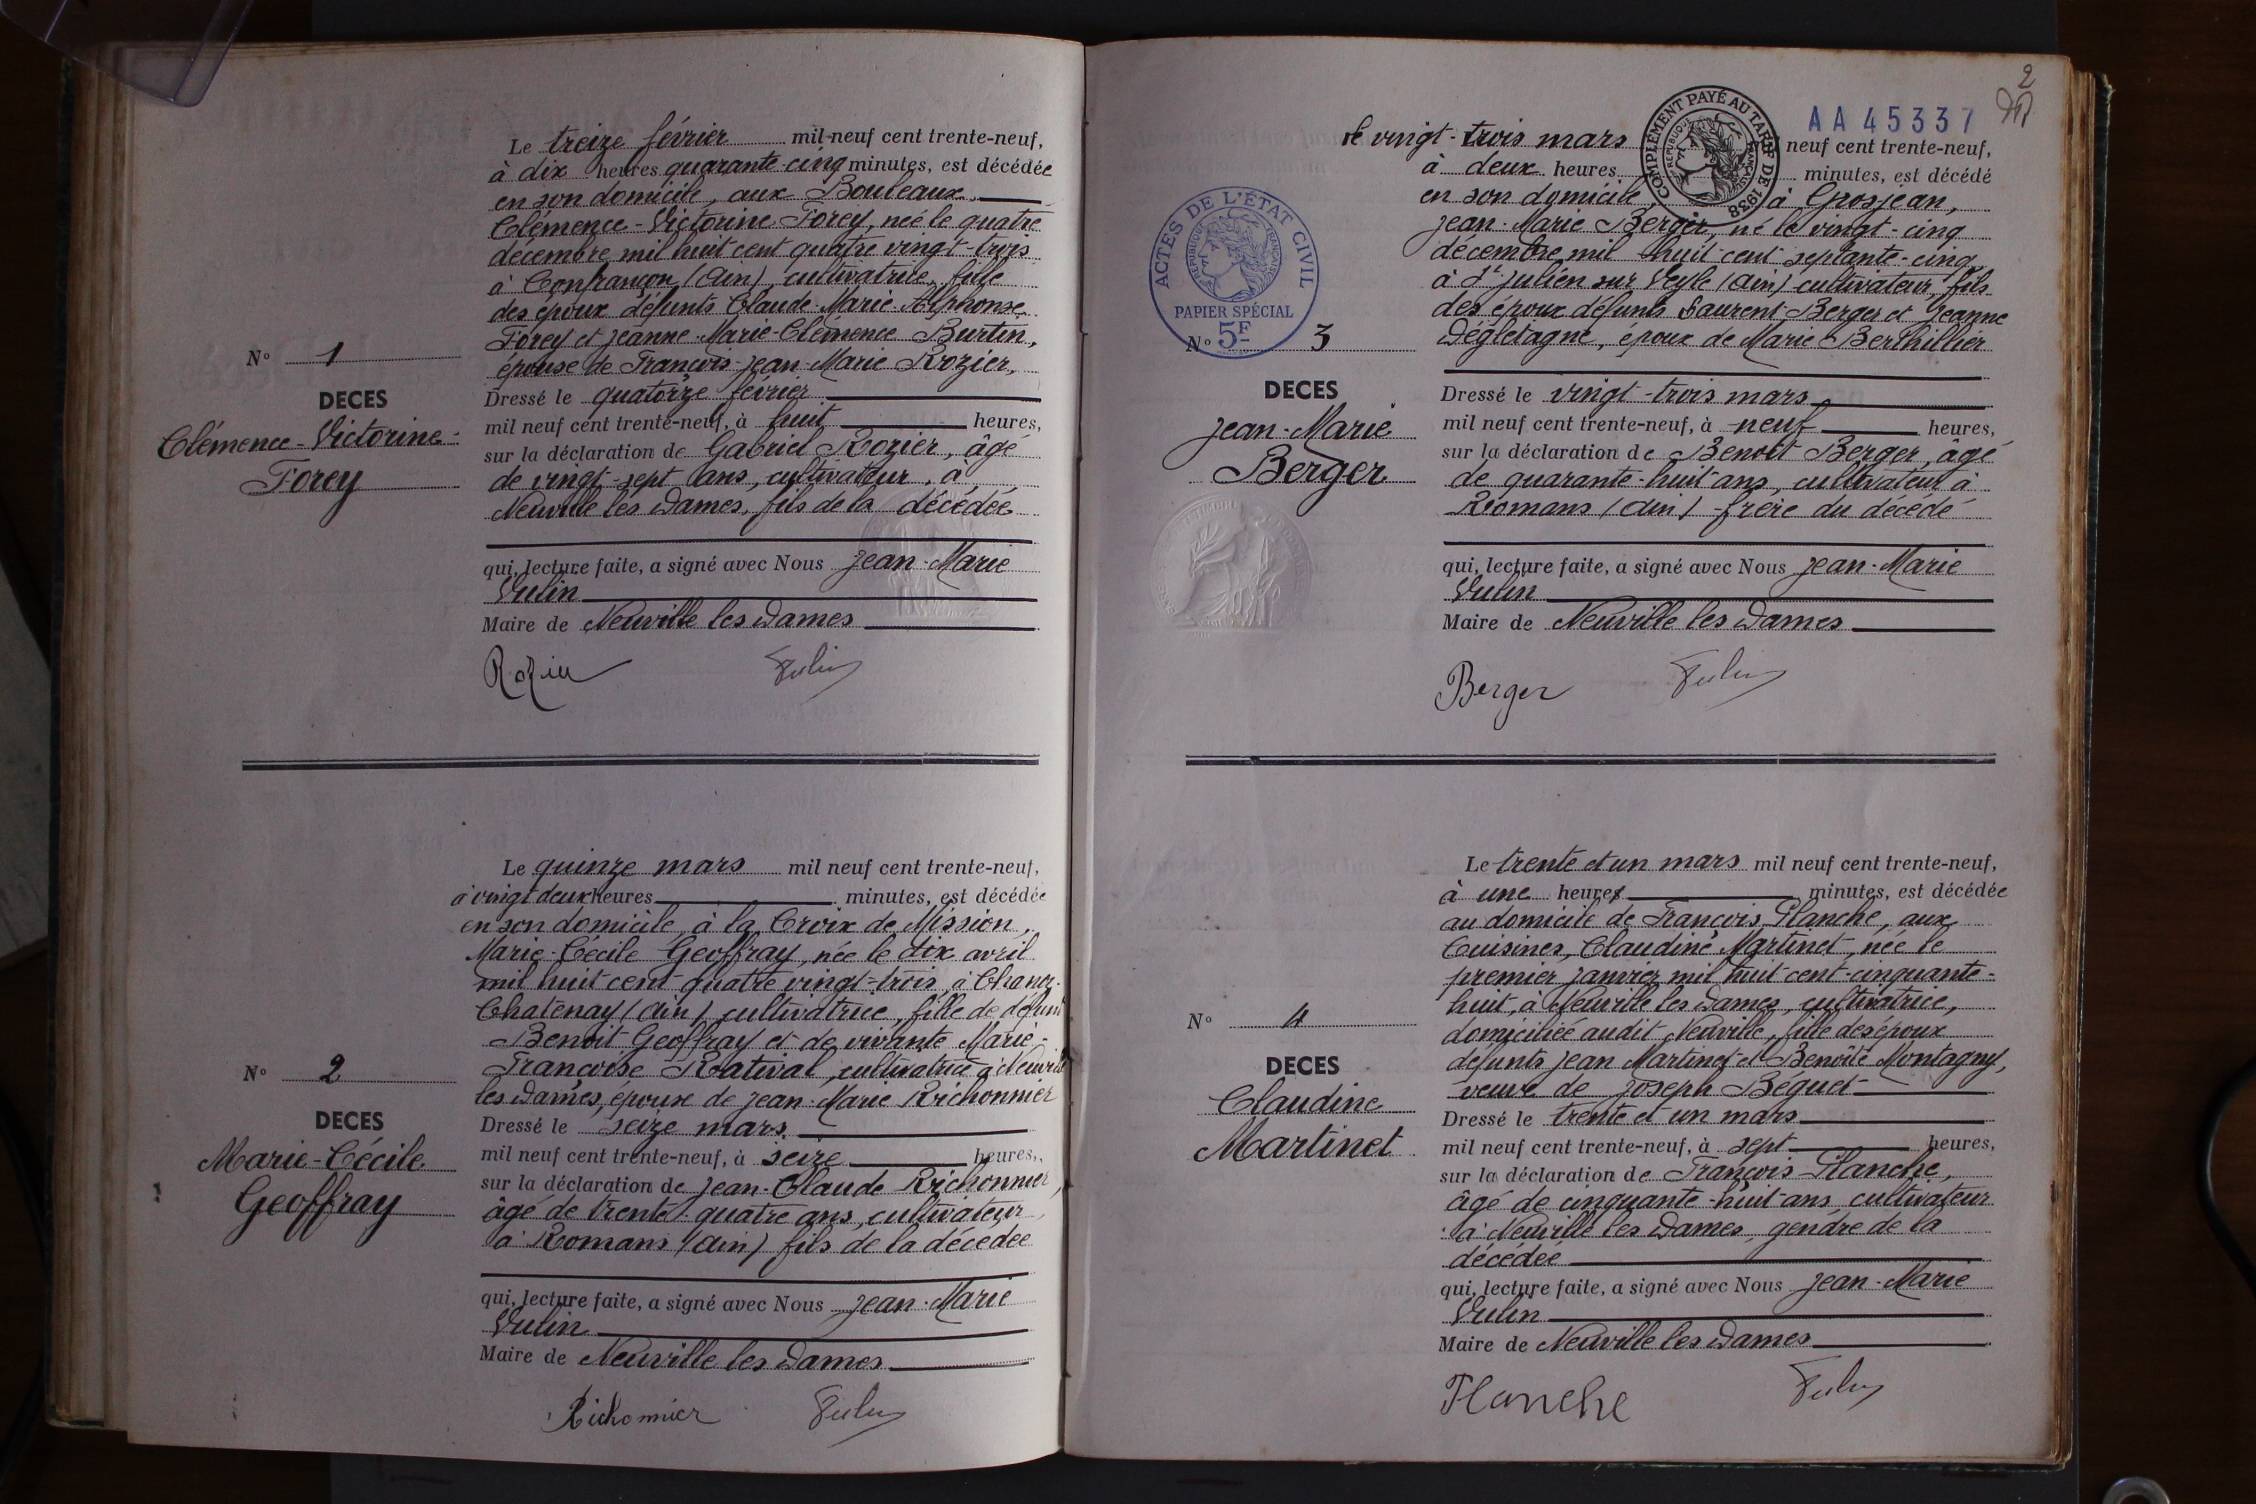 Le treize février mil neuf cent trente-neuf,
à dix heures quarante-cinq minutes, est décédée
en son domicile, aux Bouleaux,
Clémence-Victorine Forey, née le quatre
décembre mil huit cent quatre vingt-trois
à Confrançon (Ain), cultivatrice, fille
des époux défunts Claude-Marie-Alphonse
Forey et Jeanne-Marie-Clémence Burtin,
épouse de François-Jean-Marie Rozier,
N° 1
DECES
Clémence-Victorine
Forey
Dressé le quatorze février
mil neuf cent trente-neuf, à huit heures,
sur la déclaration de Gabriel Rozier, âgé
de vingt-sept ans, cultivateur, à
Neuville les Dames, fils de la décédée
qui, lecture faite, a signé avec Nous Jean-Marie
Vulin
Maire de Neuville les Dames
Rozier Vulin
Le quinze mars mil neuf cent trente-neuf,
à vingt deux heures minutes, est décédée
en son domicile, à la Croix de Mission,
Marie-Cécile Geoffray, née le dix avril
mil huit cent quatre vingt-trois, à Chanoz-
Chatenay (Ain), cultivatrice, fille de défunt
Benoit Geoffray et de vivante Marie-
Françoise Rativat, cultivatrice à Neuville
les Dames, épouse de Jean-Marie Richonnier
N° 2
DECES
Marie-Cécile
Geoffray
Dressé le seize mars
mil neuf cent trente-neuf, à seize heures,
sur la déclaration de Jean-Claude Richonnier,
âgé de trente-quatre ans, cultivateur
à Romans (Ain) fils de la décédée
qui, lecture faite, a signé avec Nous Jean-Marie
Vulin
Maire de Neuville les Dames
Richonnier Vulin
2
AA 45337
COMPLÉMENT PAYÉ AU TARIF DE 1938
RÉPUBLIQUE FRANÇAISE
le vingt-trois mars neuf cent trente-neuf,
à deux heures minutes, est décédé
en son domicile, à Grosjean,
Jean-Marie Berger, né le vingt-cinq
décembre mil huit cent septante-cinq
à St Julien sur Veyle (Ain) cultivateur, fils
des époux défunts Laurent Berger et Jeanne
Dégletagne, époux de Marie Berthillier
ACTES DE L'ÉTAT CIVIL
RÉPUBLIQUE FRANÇAISE
PAPIER SPÉCIAL
5F
N° 3
DECES
Jean-Marie
Berger
Dressé le vingt-trois mars
mil neuf cent trente-neuf, à neuf heures,
sur la déclaration de Benoit Berger, âgé
de quarante-huit ans, cultivateur à
Romans (Ain) frère du décédé
qui, lecture faite, a signé avec Nous Jean-Marie
Vulin
Maire de Neuville les Dames
Berger Vulin
Le trente et un mars mil neuf cent trente-neuf,
à une heures minutes, est décédée
au domicile de François Planche, aux
Cuisines, Claudine Martinet, née le
premier janvier mil huit cent cinquante-
huit, à Neuville les Dames, cultivatrice,
domiciliée audit Neuville, fille des époux
défunts Jean Martinet et Benoîte Montagny,
veuve de Joseph Béguet
N° 4
DECES
Claudine
Martinet
Dressé le trente et un mars
mil neuf cent trente-neuf, à sept heures,
sur la déclaration de François Planche,
âgé de cinquante-huit ans cultivateur
à Neuville les Dames, gendre de la
décédée
qui, lecture faite, a signé avec Nous Jean-Marie
Vulin
Maire de Neuville les Dames
Planche Vulin